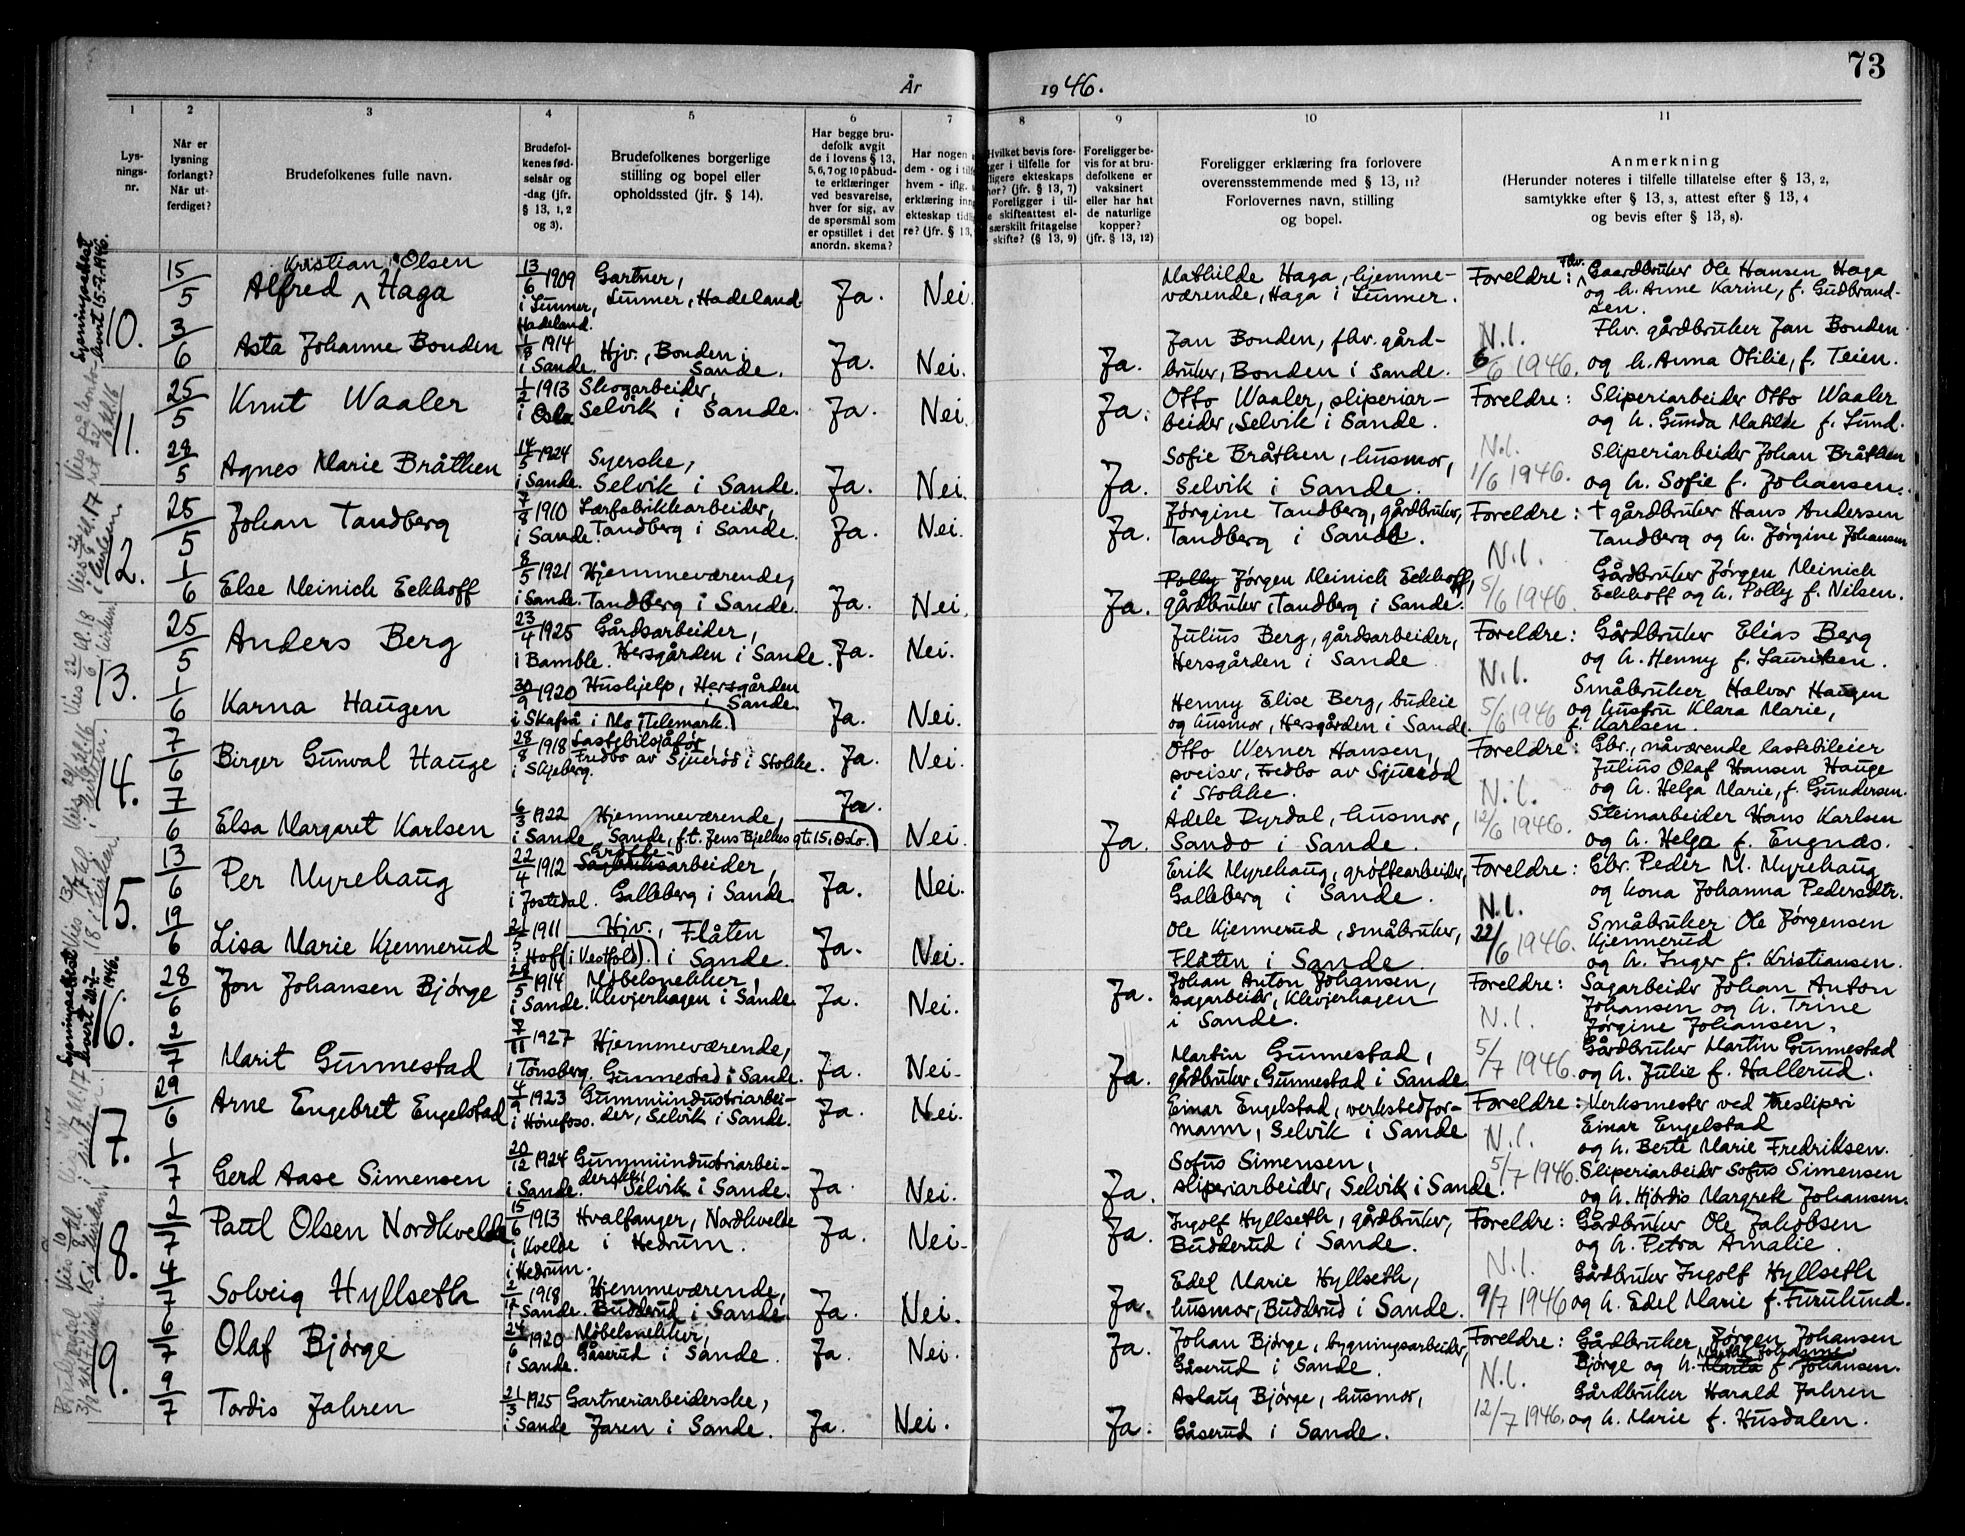 73
År 1946.
1 2 3 4 5 6 7 8 9 10 11
Lys-
nings-
nr.
Når er
lysning
forlangt?
Når ut-
ferdiget?
Brudefolkenes fulle navn.
Brudefol-
kenes fød-
selsår og
-dag (jfr.
§ 13, 1, 2
og 3).
Brudefolkenes borgerlige
stilling og bopel eller
opholdssted (jfr. § 14).
Har begge bru-
defolk avgit
de i lovens § 13,
5, 6, 7 og 10 påbud-
te erklæringer
ved besvarelse,
hver for sig, av
de spørsmål som
er opstillet i det
anordn. skema?
Har nogen
dem - og i
hvem - iflg.
erklæring
ekteskap
re? (jfr. § 13,
Hvilket bevis fore-
ger i tilfelle for
ligere ekteskaps
hør? (jfr. § 13, 7)
Foreligger i til-
e skifteattest el-
særskilt fritagelse
skifte? (§ 13, 9)
Foreligger be-
vis for at bru-
defolkene er
vaksinert
eller har hat
de naturlige
kopper?
(jfr. § 13, 12)
Foreligger erklæring fra forlovere
overensstemmende med § 13, 11?
Forlovernes navn, stilling
og bopel.
Anmerkning
(Herunder noteres i tilfelle tillatelse efter § 13, 2,
samtykke efter § 13, 3, attest efter § 13, 4
og bevis efter § 13, 8).
10.
Lysningsattest
levert 15.7.1946.
15/5
Kristian Olsen
Alfred ^ Haga
13/6 1909
i Lunner,
Hadeland.
Gartner,
Lunner, Hadeland
Ja.
Nei.
Mathilde Haga, hjemme-
værende, Haga i Lunner.
Foreldre: Fhv. Gaardbruker Ole Hansen Haga
og h. Anne Karine, f. Gudbrand-
sen.
3/6
Asta Johanne Bonden
1/8 1914
i Sande.
Hjv., Bonden i
Sande.
Ja.
Nei.
Ja.
Jan Bonden, fhv. gård-
bruker, Bonden i Sande.
N.l.
6/6 1946.
Fhv. gårdbruker Jan Bonden
og h. Anna Otilie, f. Teien.
11.
25/5
Knut Waaler
1/2 1913
i Oslo
Skogarbeider,
Selvik i Sande.
Ja.
Nei.
Ja.
Otto Waaler, sliperiar-
beider, Selvik i Sande.
Foreldre: Sliperiarbeider Otto Waaler
og h. Gunda Matilde f. Lund.
28/5
Agnes Marie Bråthen
14/5 1924
i Sande.
Syerske,
Selvik i Sande.
Ja.
Nei.
Ja.
Sofie Bråthen, husmor,
Selvik i Sande.
N.l.
1/6 1946.
Sliperiarbeider Johan Bråthen
og h. Sofie f. Johansen.
12.
25/5
Johan Tandberg
7/8 1910
i Sande.
Lærfabrikkarbeider,
Tandberg i Sande.
Ja.
Nei.
Ja.
Jørgine Tandberg, gårdbruker,
Tandberg i Sande.
Foreldre: † gårdbruker Hans Andersen
Tandberg og h. Jørgine Johansen
1/6
Else Meinich Eckhoff
8/5 1921
i Sande.
Hjemmeværende,
Tandberg i Sande.
Ja.
Nei.
Ja.
Polly Jørgen Meinich Eckhoff,
gårdbruker, Tandberg i Sande.
N.l.
5/6 1946.
Gårdbruker Jørgen Meinich
Eckhoff og h. Polly f. Nilsen.
13.
25/5
Anders Berg
23/4 1925
i Bamble.
Gårdsarbeider,
Hersgården i Sande.
Ja.
Nei.
Julius Berg, gårdsarbeider,
Hersgården i Sande
Foreldre: Gårdbruker Elias Berg
og h. Henny f. Lauritsen.
1/6
Karna Haugen
30/9 1920
i Skafså i Mo (Telemark.)
Hushjelp, Hersgården
i Sande
Ja.
Nei.
Henny Elise Berg, budeie
og husmor, Hersgården i Sande
N.l.
5/6 1946
Småbruker Halvor Haugen
og husfru Klara Marie,
f. Karlsen.
14.
7/6
Birger Gunval Hauge
28/8 1918
i Skjeberg.
Lastebilsjåfør,
Fredbo av Sjuerød i Stokke.
Ja.
Nei.
Otto Werner Hansen,
sveiser, Fredbo av Sjuerød
i Stokke.
Foreldre: Gbr., nåværende lastebileier
Julius Olaf Hansen Hauge
og h. Helga Marie, f. Gundersen.
7/6
Elsa Margaret Karlsen
6/3 1922
i Sande
Hjemmeværende,
Sande, f.t. Jens Bjelkes gt. 15, Oslo.
Ja.
Nei.
Ja.
Adele Dyrdal, husmor,
Sando i Sande.
N.l.
12/6 1946.
Steinarbeider Hans Karlsen
og h. Helga f. Engnæs.
15.
13/6
Per Myrehaug
22/4 1912
i Jostedal.
Grøfte-
arbeider,
Galleberg i Sande.
Ja.
Nei.
Erik Myrehaug, grøftearbeider,
Galleberg i Sande.
Foreldre: Gbr. Peder M. Myrehaug
og kona Johanna Pedersdtr.
19/6
Lisa Marie Kjennerud
21/5 1911
i Hof (i Vestfold).
Hjv., Flåten
i Sande.
Ja.
Nei.
Ole Kjennerud, småbruker,
Flåten i Sande.
N.l.
22/6 1946.
Småbruker Ole Jørgensen
Kjennerud
og h. Inger f. Kristiansen.
16.
Lysningsattest
levert 20.7.-
1946.
28/6
Jon Johansen Bjørge
1914
i Sande.
Møbelsnekker,
Klevjerhagen i Sande
Ja.
Nei.
Ja.
Johan Anton Johansen,
sagarbeider, Klevjerhagen
i Sande.
Foreldre: Sagarbeider Johan Anton
Johansen og h. Trine
Jørgine Johansen.
2/7
Marit Gunnestad
8/11 1927
i Tønsberg.
Hjemmeværende,
Gunnestad i Sande.
Ja.
Nei.
Ja.
Martin Gunnestad,
gårdbruker, Gunnestad i Sande
N.l.
5/7 1946.
Gårdbruker Martin Gunnestad
og h. Julie f. Hallerud.
17.
29/6
Arne Engebret Engelstad
4/9 1923
i Hønefoss.
Gummiindustriarbei-
der, Selvik i Sande.
Ja.
Nei.
Einar Engelstad, verkstedfor-
mann, Selvik i Sande
Foreldre: Verksmester ved tresliperi
Einar Engelstad
og h. Berte Marie Fredriksen.
1/7
Gerd Aase Simensen
20/12 1924
i Sande.
Gummiindustriarbei-
derske, Selvik i Sande.
Ja.
Nei.
Ja.
Sofus Simensen,
sliperiarbeider, Selvik i Sande.
N.l.
5/7 1946.
Sliperiarbeider Sofus Simensen
og h. Hjørdis Margrete Johansen.
18.
2/7
Paul Olsen Nordkvelde
15/6 1913
i Kvelde
i Hedrum.
Hvalfanger, Nordkvelde
i Hedrum.
Ja.
Nei.
Ja.
Ingolf Hyllseth, gårdbruker,
Budderud i Sande.
Foreldre: Gårdbruker Ole Jakobsen
og h. Petra Amalie.
4/7
Solveig Hyllseth
2/12 1918
i Sande.
Hjemmeværende,
Budderud i Sande.
Ja.
Nei.
Ja.
Edel Marie Hyllseth,
husmor, Budderud i Sande.
N.l.
9/7 1946
Gårdbruker Ingolf Hyllseth
og h. Edel Marie f. Furulund.
19.
6/7
Olaf Bjørge
24/6 1920
i Sande.
Møbelsnekker,
Gåserud i Sande.
Ja.
Nei.
Ja.
Johan Bjørge, bygningsarbeider,
Gåserud i Sande.
Foreldre: Gårdbruker Jørgen Johansen
Bjørge og h. Marta Johanne f. Johansen.
9/7
Tordis Jahren
21/3 1925
i Sande
Gartneriarbeiderske,
Jaren i Sande.
Ja.
Nei.
Ja.
Aslaug Bjørge, husmor,
Gåserud i Sande.
N.l.
12/7 1946.
Gårdbruker Harald Jahren
og h. Marie f. Husdalen.